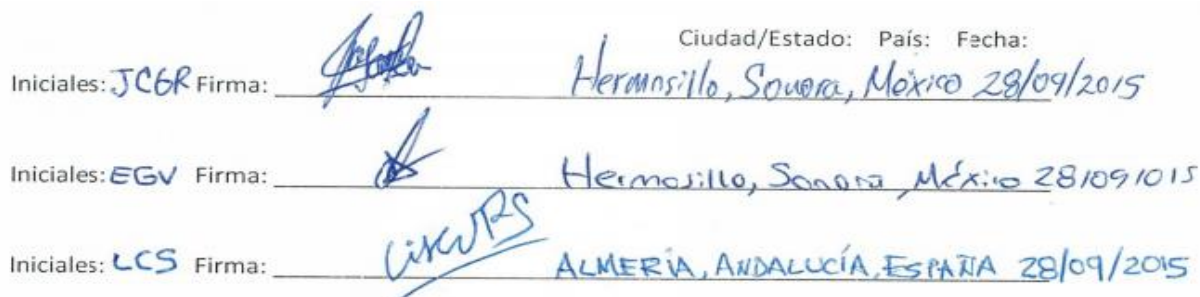 Ciudad/Estado: País: Fecha:
Iniciales: JCGR Firma: Hermosillo, Sonora, México 28/09/2015
Iniciales: EGV Firma: Hermosillo, Sonora, México 28/09/1015
Iniciales: LCS Firma: ALMERÍA, ANDALUCÍA, ESPAÑA 28/09/2015